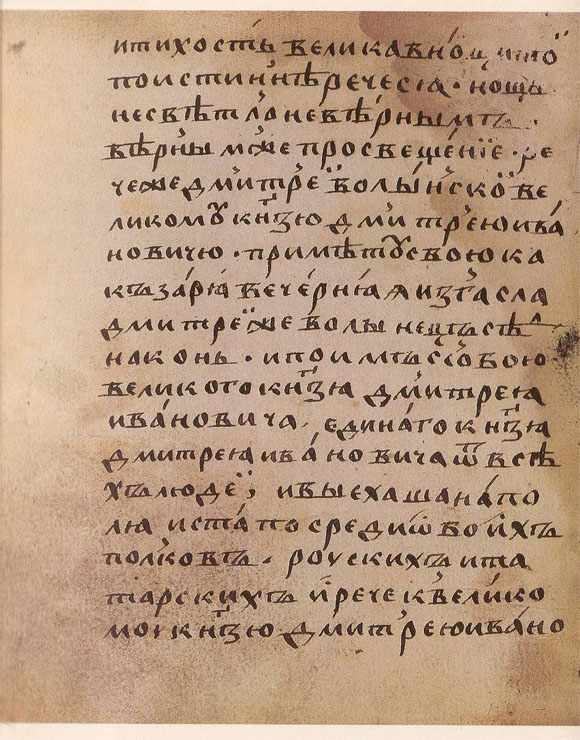 и тихость велика в нощи той
поистиннѣ речеся · нощь
несвѣтла невѣрнымъ ·
вѣрнымже просвещение · ре
чеже дмитреӥ волынскоӥ ве
ликомꙋ кнꙗзю дмитрею ива
новичю · примѣтꙋ свою ка
къ заря вечерняя изгасла
дмитреӥ же волынецъ сѣд
на конь · и поимъ с собою
великого кнꙗзя дмитрея
ивановича, единаго кнꙗзя
дмитрея ивановича ѿ всѣ
хъ людеӥ; и выехаша на по
ля и ста посреди ѡбоихъ
полковъ · роускихъ и та
тарскихъ и рече к велико
моу кнꙗзю дмитрею ивано